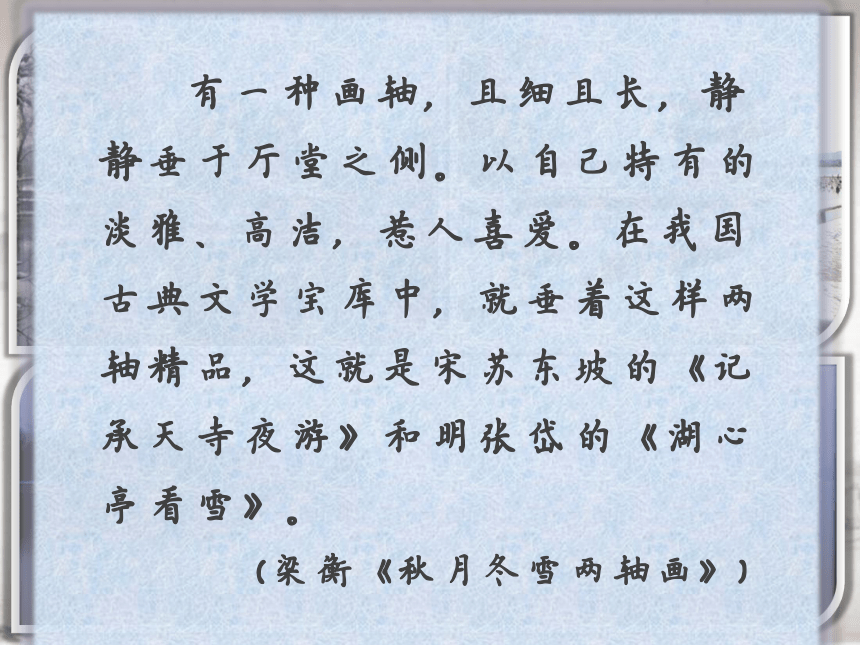 有一种画轴，且细且长，静
静垂于厅堂之侧。以自己特有的
淡雅、高洁，惹人喜爱。在我国
古典文学宝库中，就垂着这样两
轴精品，这就是宋苏东坡的《记
承天寺夜游》和明张岱的《湖心
亭看雪》。
(梁衡《秋月冬雪两轴画》)